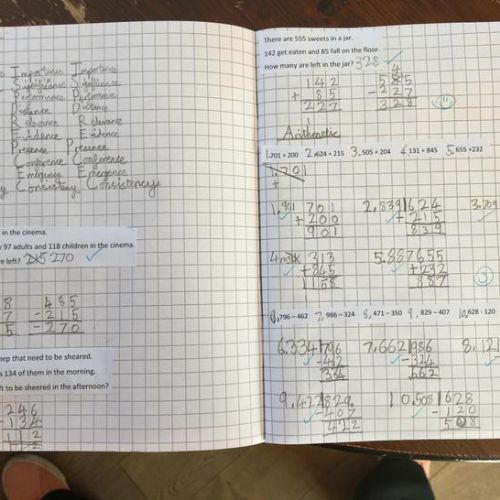 Importance Importance
Significance Significance
Performance Performance
Distance Distance
Relevance R Relevance
Evidence E Evidence
Presence P Presence
Conference C Conference
Emergency E Emergence
Consistency C Consistency
in the cinema.
97 adults and 118 children in the cinema.
left? 270
8 485
7 - 215
5 - 270
eep that need to be sheared.
s 134 of them in the morning.
ft to be sheered in the afternoon?
246
- 134
112
There are 555 sweets in a jar.
142 get eaten and 85 fall on the floor.
How many are left in the jar? 328
142
+ 85
227
- 227
328
Arithmetic
1. 701 + 200 2. 624 + 215 3. 505 + 204 4. 131 + 845 5. 655 + 232
1. 701
+
1. 901 701
+ 200
901
2. 839 624
+ 215
839
3. 709
4. 313
+ 845
1158
5. 887 655
+ 232
887
6. 796 – 462 7. 986 – 324 8. 471 – 350 9. 829 – 407 10. 628 - 120
6. 334 796
334
7. 662 986
- 324
662
8. 121
9. 422 829
- 407
422
10. 508 628
- 120
508